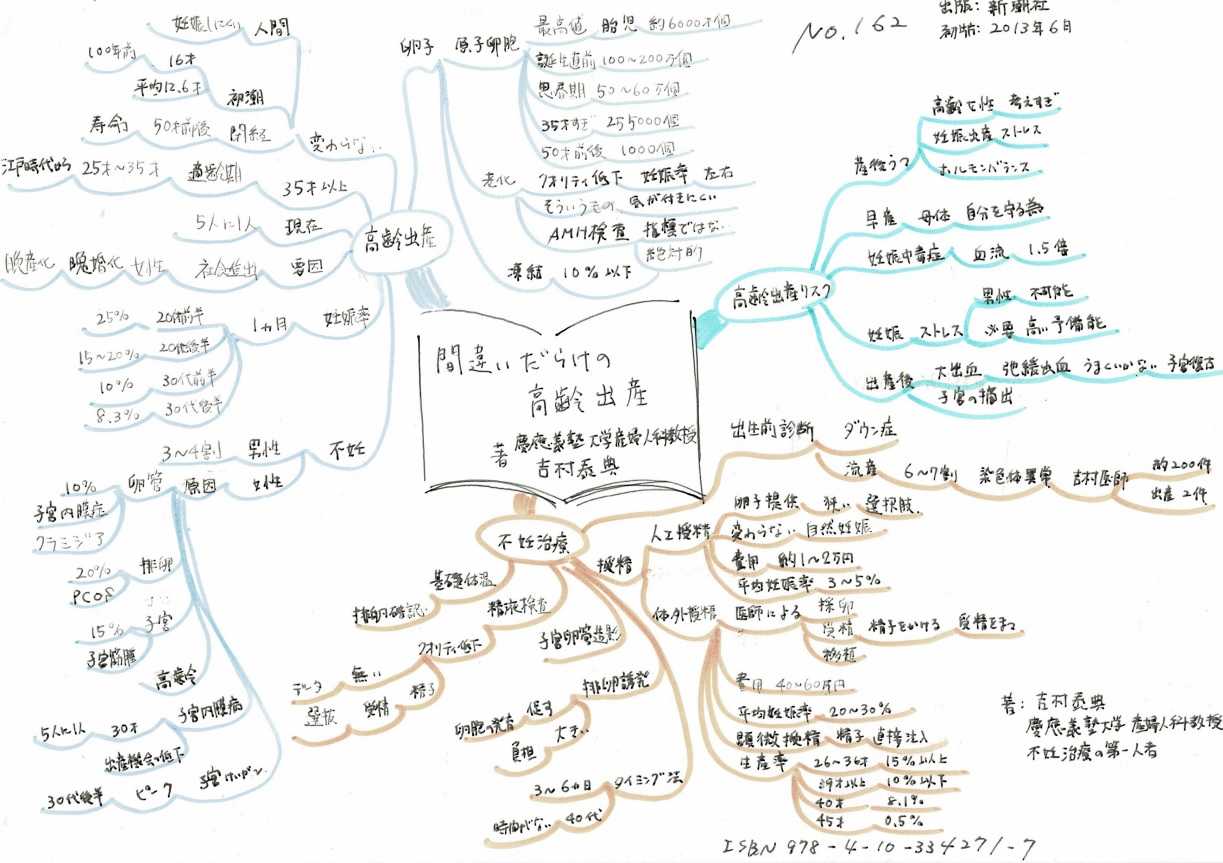 出版: 新潮社
初版: 2013年6月
No.162
間違いだらけの
高齢出産
著 慶應義塾大学産婦人科教授
吉村泰典
高齢出産
変わらない
人間
妊娠しにくい
初潮
16才
100年前
平均12.6才
閉経
50才前後
寿命
35才以上
適齢期
25才〜35才
江戸時代から
現在
5人に1人
要因
社会進出
女性
晩婚化
晩産化
妊娠率
1ヵ月
20代前半
25%
20代後半
15〜20%
30代前半
10%
30代後半
8.3%
不妊
男性
3〜4割
女性
原因
卵管
10%
子宮内膜症
クラミジア
排卵
20%
PCOS
子宮
15%
子宮筋腫
高齢
子宮内膜症
30才
5人に1人
出産機会の低下
子宮けいがん
ピーク
30代後半
卵子
原子卵胞
最高値 胎児 約6000才個
誕生直前 100〜200万個
思春期 50〜60万個
35才すぎ 255000個
50才前後 1000個
老化
クオリティ低下 妊娠率 左右
そういうもの 気が付きにくい
AMH検査 指標ではない
絶対的
凍結 10%以下
高齢出産リスク
産後うつ
高齢女性 考えすぎ
妊娠出産 ストレス
ホルモンバランス
早産 母体 自分を守る為
妊娠中毒症 血流 1.5倍
妊娠 ストレス
男性 不可能
必要 高い予備能
出産後
大出血 弛緩出血 うまくいかない 子宮復古
子宮の摘出
不妊治療
出生前診断 ダウン症
流産 6〜7割 染色体異常 吉村医師
約200件
出産 2件
授精
人工授精
卵子提供 狭い 選択肢
変わらない 自然妊娠
費用 約1〜2万円
平均妊娠率 3〜5%
体外授精
医師による
採卵
受精 精子をかける 受精をまつ
移植
費用 40〜60万円
平均妊娠率 20〜30%
顕微授精 精子 直接注入
生産率
26〜36才 15%以上
39才以上 10%以下
40才 8.1%
45才 0.5%
基礎体温
排卵確認
精液検査
クオリティ低下
無い
データ
精子
受精
選抜
子宮卵管造影
排卵誘発
促す
卵胞発育
大きい
負担
タイミング法
3〜6ヵ月
40代
時間がない
著: 吉村泰典
慶應義塾大学 産婦人科教授
不妊治療の第一人者
ISBN 978-4-10-334271-7